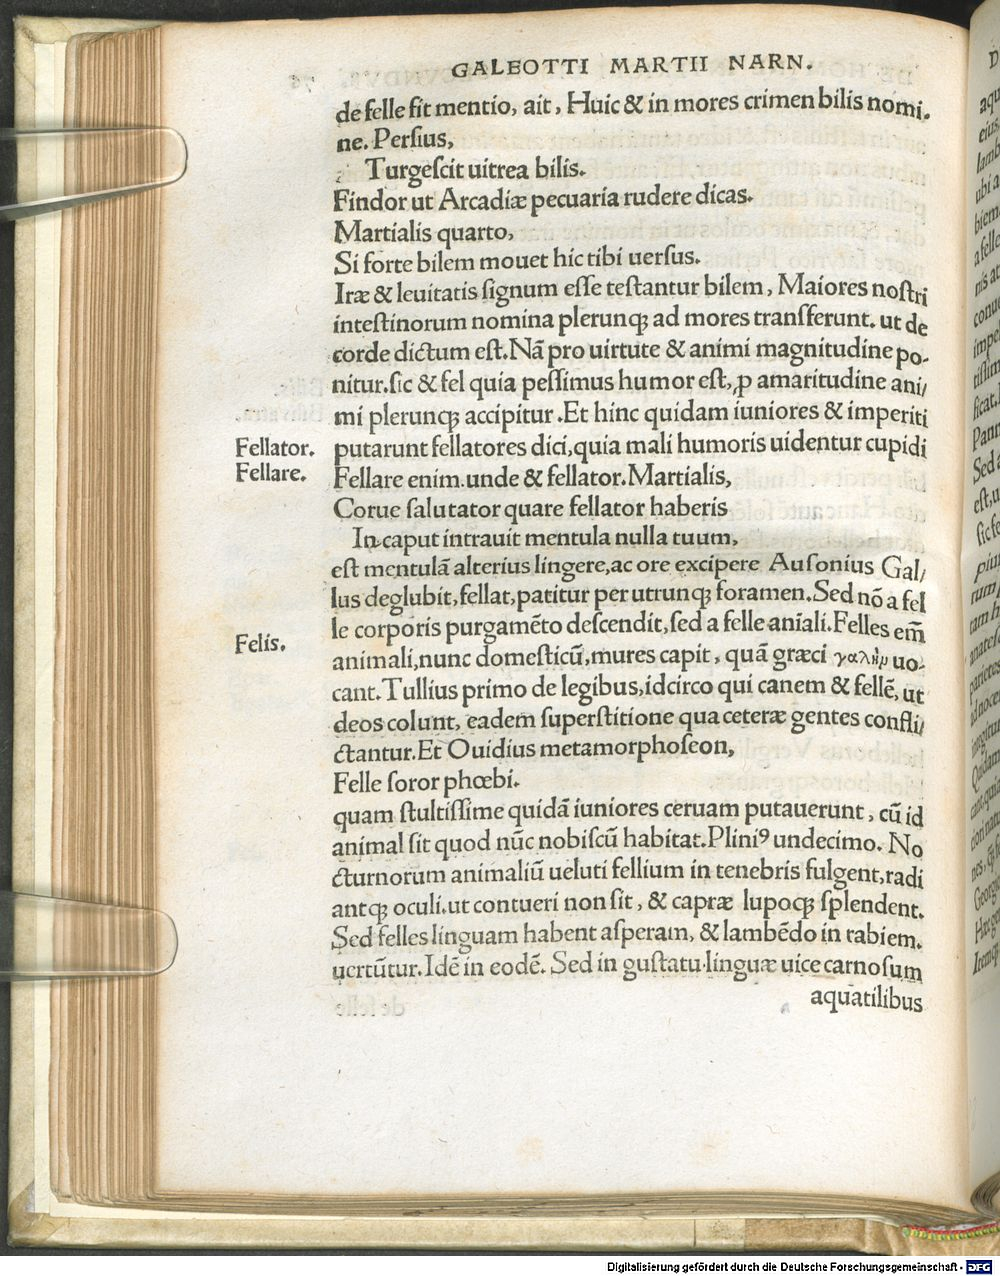 GALEOTTI MARTII NARN.
de felle fit mentio, ait, Huic & in mores crimen bilis nomi-
ne. Persius,
Turgescit uitrea bilis.
Findor ut Arcadiæ pecuaria rudere dicas.
Martialis quarto,
Si forte bilem mouet hic tibi uersus.
Iræ & leuitatis signum esse testantur bilem, Maiores nostri
intestinorum nomina plerunqꝫ ad mores transferunt. ut de
corde dictum est. Nã pro uirtute & animi magnitudine po-
nitur. sic & fel quia pessimus humor est, ꝓ amaritudine ani/
mi plerunqꝫ accipitur. Et hinc quidam iuniores & imperiti
Fellator. putarunt fellatores dici, quia mali humoris uidentur cupidi
Fellare. Fellare enim. unde & fellator. Martialis,
Corue salutator quare fellator haberis
In caput intrauit mentula nulla tuum,
est mentulã alterius lingere, ac ore excipere Ausonius Gal/
lus deglubit, fellat, patitur per utrunqꝫ foramen. Sed nõ a fel
le corporis purgamẽto descendit, sed a felle aniali. Felles em̃
Felis. animali, nunc domesticũ, mures capit, quã græci γαλῆν uo-
cant. Tullius primo de legibus, idcirco qui canem & fellẽ, ut
deos colunt, eadem superstitione qua ceteræ gentes confli/
ctantur. Et Ouidius metamorphoseon,
Felle soror phœbi.
quam stultissime quidã iuniores ceruam putauerunt, cũ id
animal sit quod nũc nobiscũ habitat. Pliniꝰ undecimo. No
cturnorum animaliũ ueluti fellium in tenebris fulgent, radi
antqꝫ oculi. ut contueri non sit, & capræ lupoqꝫ splendent.
Sed felles linguam habent asperam, & lambẽdo in rabiem.
uertũtur. Idẽ in eodẽ. Sed in gustatu linguæ uice carnosum
aquatilibus
Digitalisierung gefördert durch die Deutsche Forschungsgemeinschaft - DFG